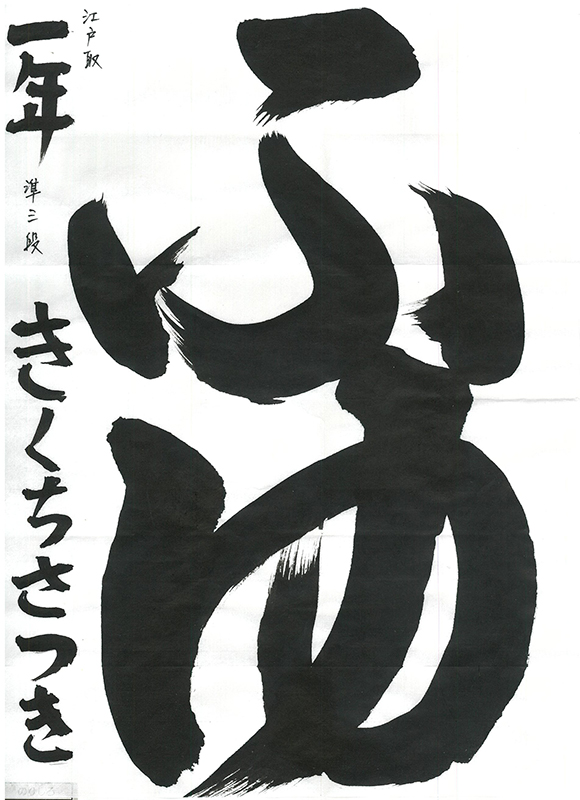 ふゆ
江戸取
一年 準三段 きくちさつき